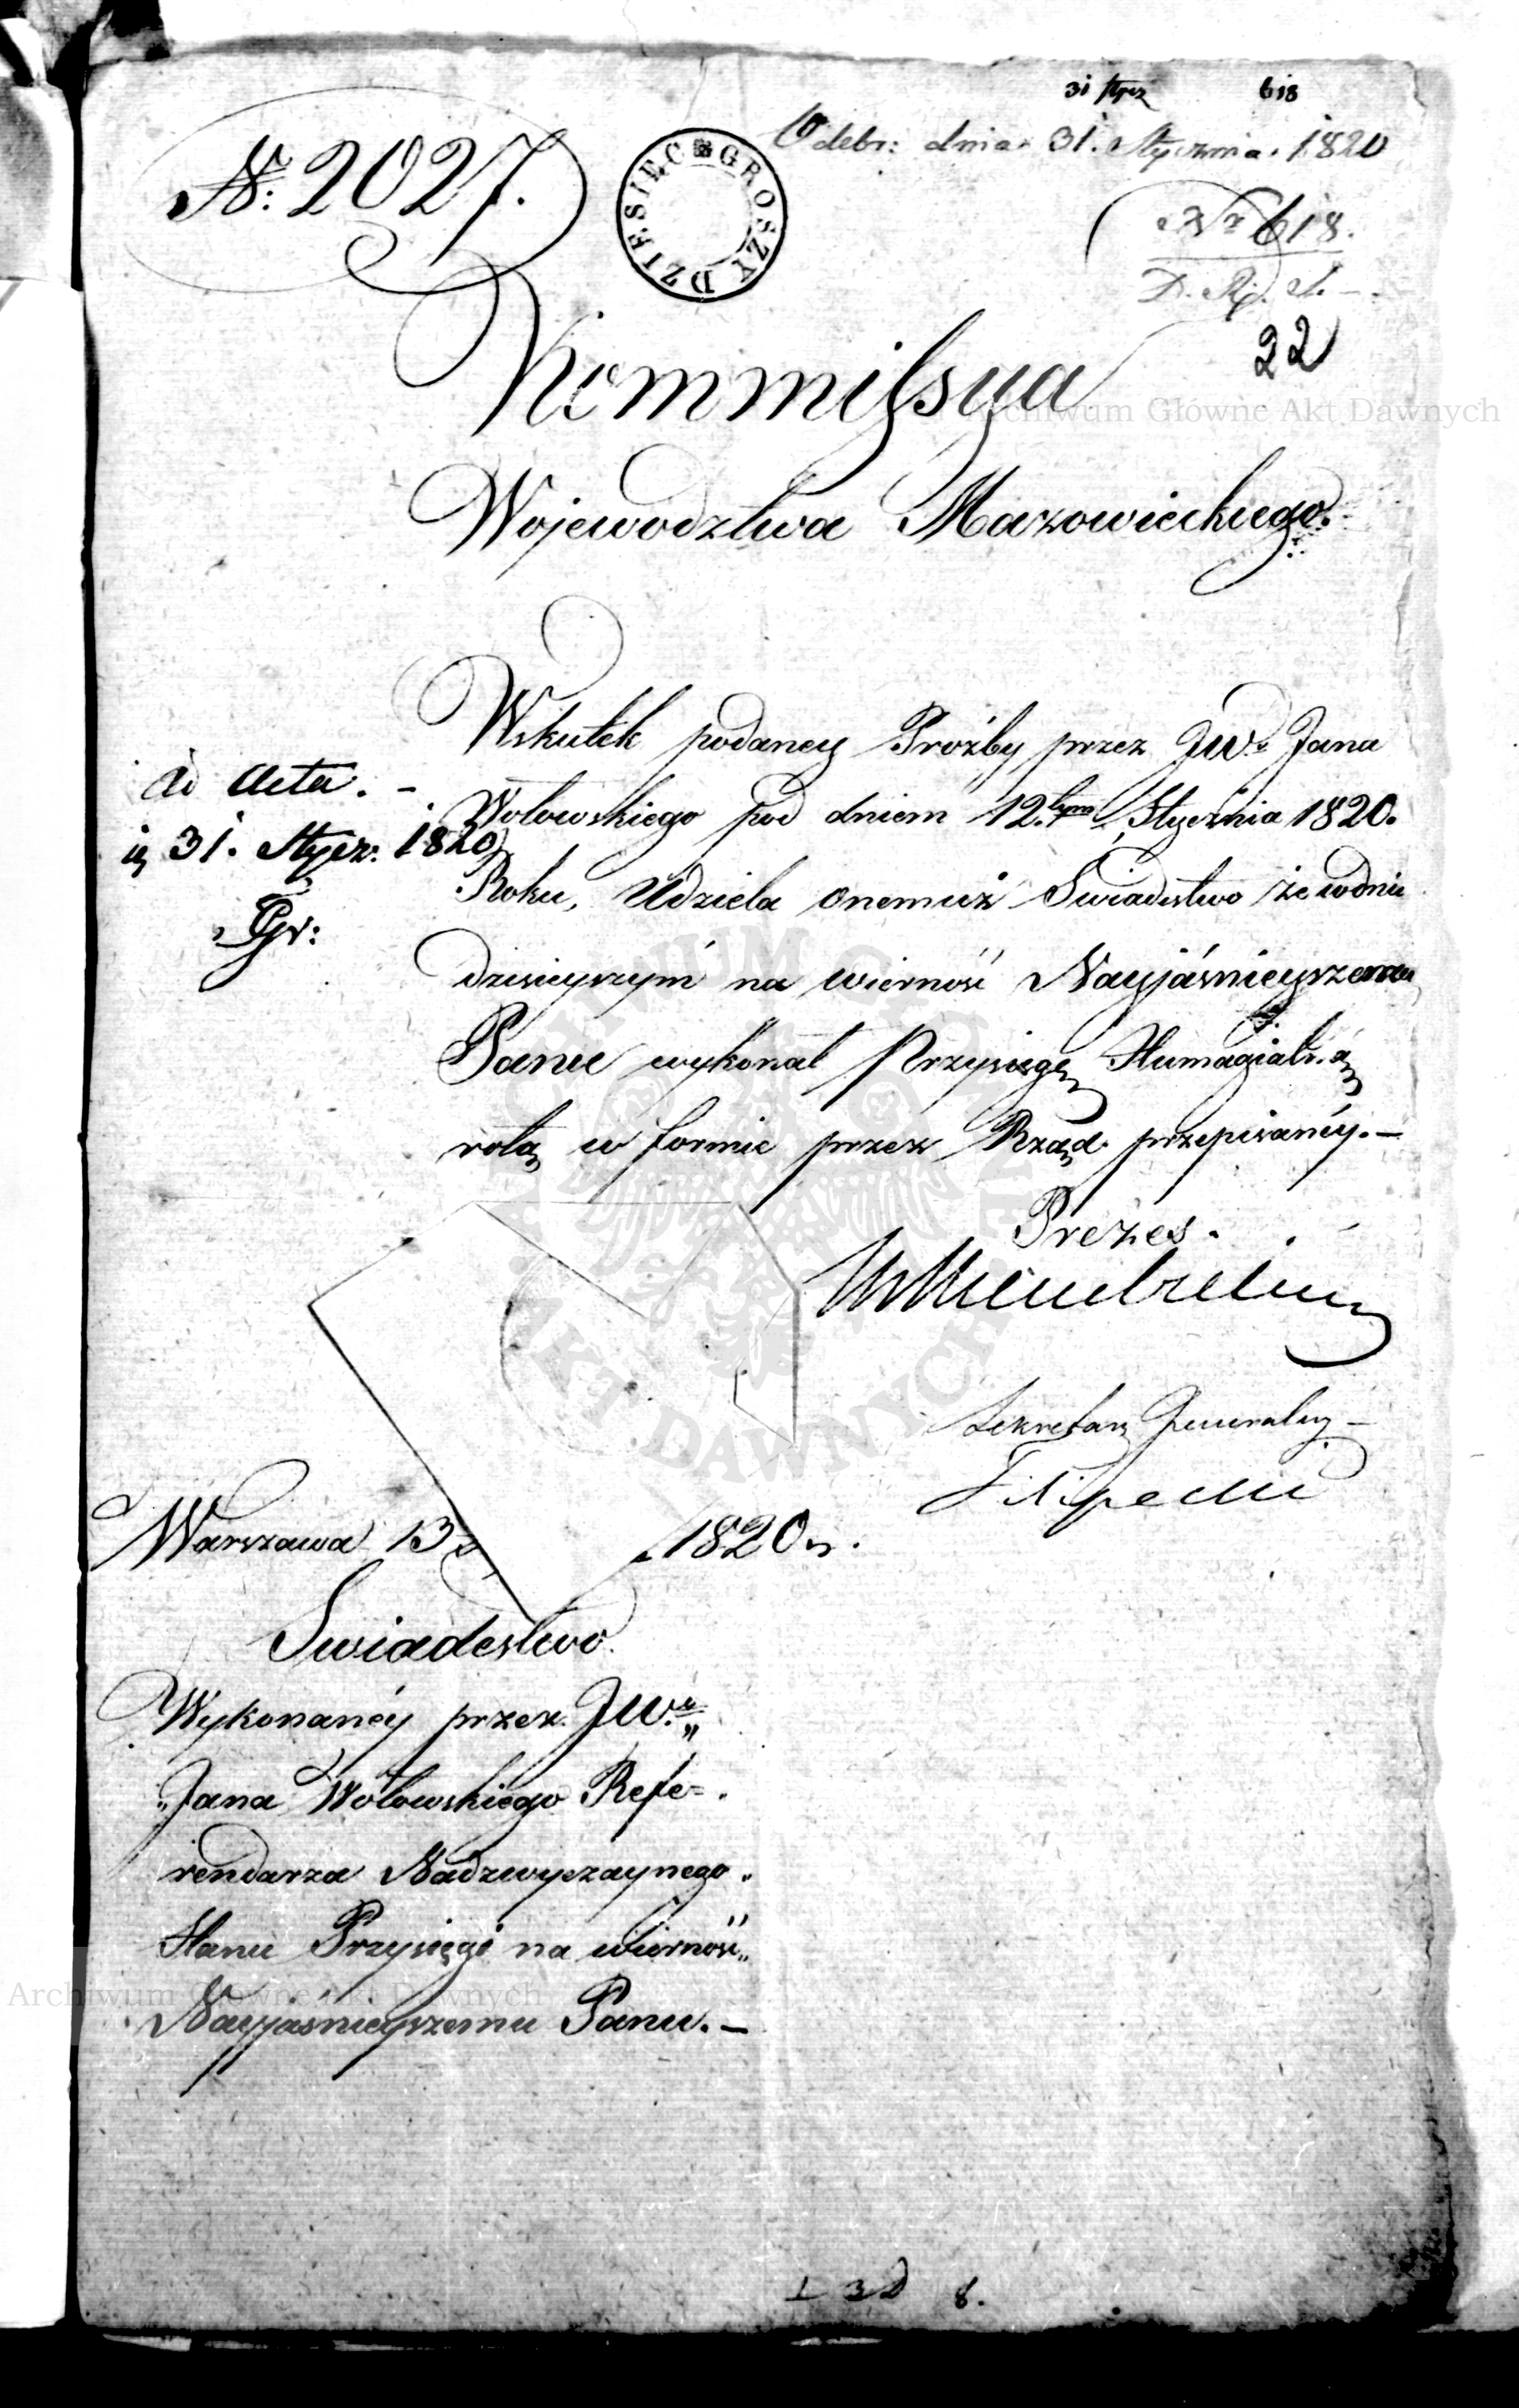 31 Stycz 618
Odebr: dnia 31. Stycznia. 1820
№: 2027.
DZIESIĘC GROSZY
Nr 618.
22
Kommissya
Archiwum Główne Akt Dawnych
Województwa Mazowieckiego.
Wskutek podaney Proźby przez JW. Jana
Wołowskiego pod dniem 12.tym Stycznia 1820.
Roku, Udziela onemuż Swiadectwo że wdniu
dzisieyszym na wierność Nayjaśnieyszemu
Panu wykonał Przysięgę Homagialną
rotą w formie przez Rząd przepisanéy. —
ad Acta. —
31. Stycz: 1820
Prezes.
Sekretarz Generalny —
Filipecki
Warszawa 13 1820 r.
Swiadectwo.
Wykonanéy przez JW.
Jana Wołowskiego Refe=
rendarza Nadzwyczaynego
Stanu Przysięgi na wierność
Nayjaśnieyszemu Panu. —
Archiwum Główne Akt Dawnych
ARCHIWUM GŁÓWNE AKT DAWNYCH